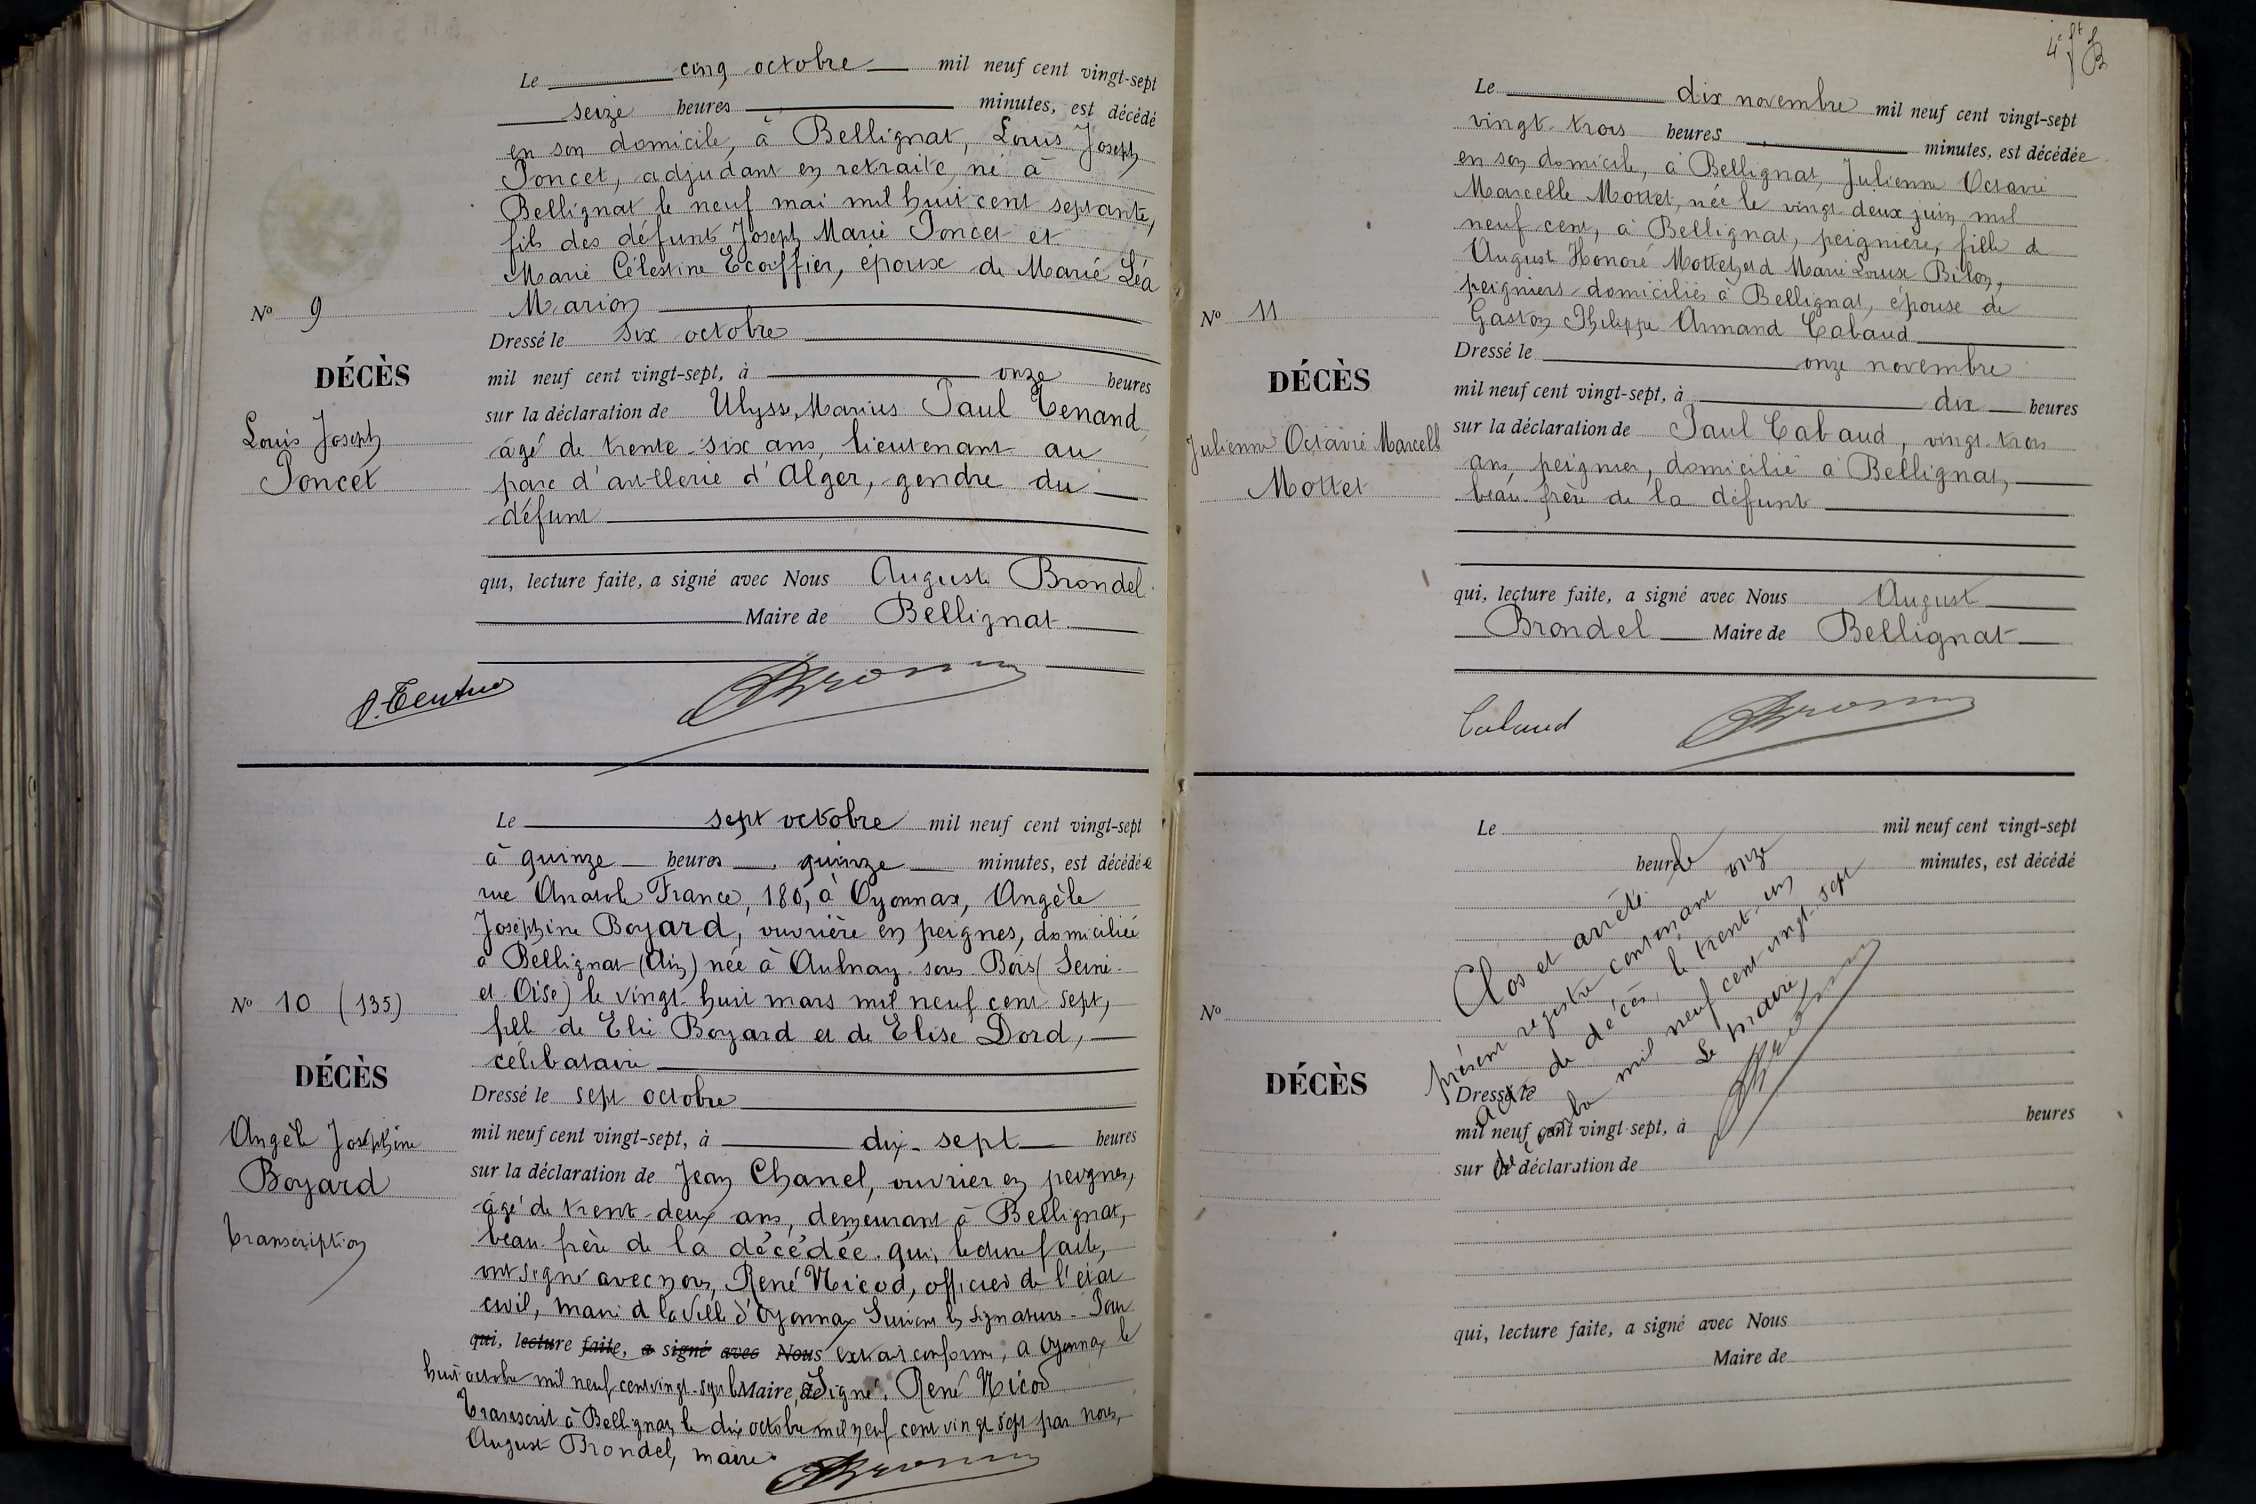 Le cinq octobre mil neuf cent vingt-sept
seize heures minutes, est décédé
en son domicile, à Bellignat, Louis Joseph
Poncet, adjudant en retraite, né à
Bellignat le neuf mai mil huit cent septante,
fils des défunts Joseph Marie Poncet et
Marie Célestine Ecoiffier, époux de Marie Léa
Marion
Nº 9
Dressé le six octobre
DÉCÈS
mil neuf cent vingt-sept, à onze heures
sur la déclaration de Ulysse, Marius Paul Tenand
Louis Joseph
Poncet
âgé de trente-six ans, lieutenant au
parc d'artllerie d'Alger, gendre du
défunt
qui, lecture faite, a signé avec Nous Auguste Brondel
Maire de Bellignat
Le sept octobre mil neuf cent vingt-sept
à quinze heures quinze minutes, est décédée
rue Anatole France, 180, à Oyonnax, Angèle
Joséphine Boyard, ouvrière en peignes, domiciliée
à Bellignat (Ain) née à Aulnay-sous Bois (Seine-
et Oise) le vingt-huit mars mil neuf cent sept,
fille de Elie Boyard et de Elise Dord,
célibataire
Nº 10 (135)
DÉCÈS
Dressé le sept octobre
mil neuf cent vingt-sept, à dix-sept heures
Angèle Joséphine
Boyard
transcription
sur la déclaration de Jean Chanel, ouvrier en peignes,
âgé de trente-deux ans, demeurant à Bellignat,
beau-frère de la décédée. qui, lecture faite,
ont signé avec nous, René Nicod, officier de l'état
civil, maire de la Ville d'Oyonnax Suivent les signatures - Pour
qui, lecture faite, a signé avec Nous extrait conforme, à Oyonnax le
huit octobre mil neuf cent vingt-sept le Maire, de Signé: René Nicod
Transcrit à Bellignat, le dix octobre mil neuf cent vingt sept par nous,
August Brondel, maire
4e ft
B
Le dix novembre mil neuf cent vingt-sept
vingt-trois heures minutes, est décédée
en son domicile, à Bellignat, Julienne Octavie
Marcelle Mottet, née le vingt-deux juin mil
neuf cent, à Bellignat, peignière, fille de
August Honoré Mottet et Marie Louise Bilon,
peigniers domiciliés à Bellignat, épouse de
Gaston Philippe Armand Cabaud
Nº 11
DÉCÈS
Dressé le onze novembre
mil neuf cent vingt-sept, à dix heures
Julienne Octavie Marcelle
Mottet
sur la déclaration de Paul Cabaud, vingt-trois
ans, peignier, domicilié à Bellignat,
beau-frère de la défunte
qui, lecture faite, a signé avec Nous August
Brondel Maire de Bellignat
Cabaud
Le mil neuf cent vingt-sept
heures minutes, est décédé
Clos et arrêté le
présent registre contenant onze
actes de décès, le trente-un
décembre mil neuf cent vingt-sept
Le Maire,
Nº
DÉCÈS
Dressé le
mil neuf cent vingt-sept, à heures
sur la déclaration de
qui, lecture faite, a signé avec Nous
Maire de